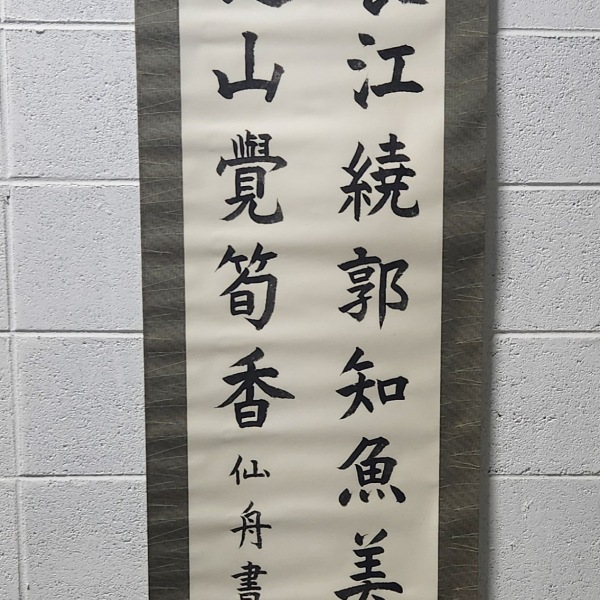 長江繞郭知魚美
山覺筍香
仙舟書